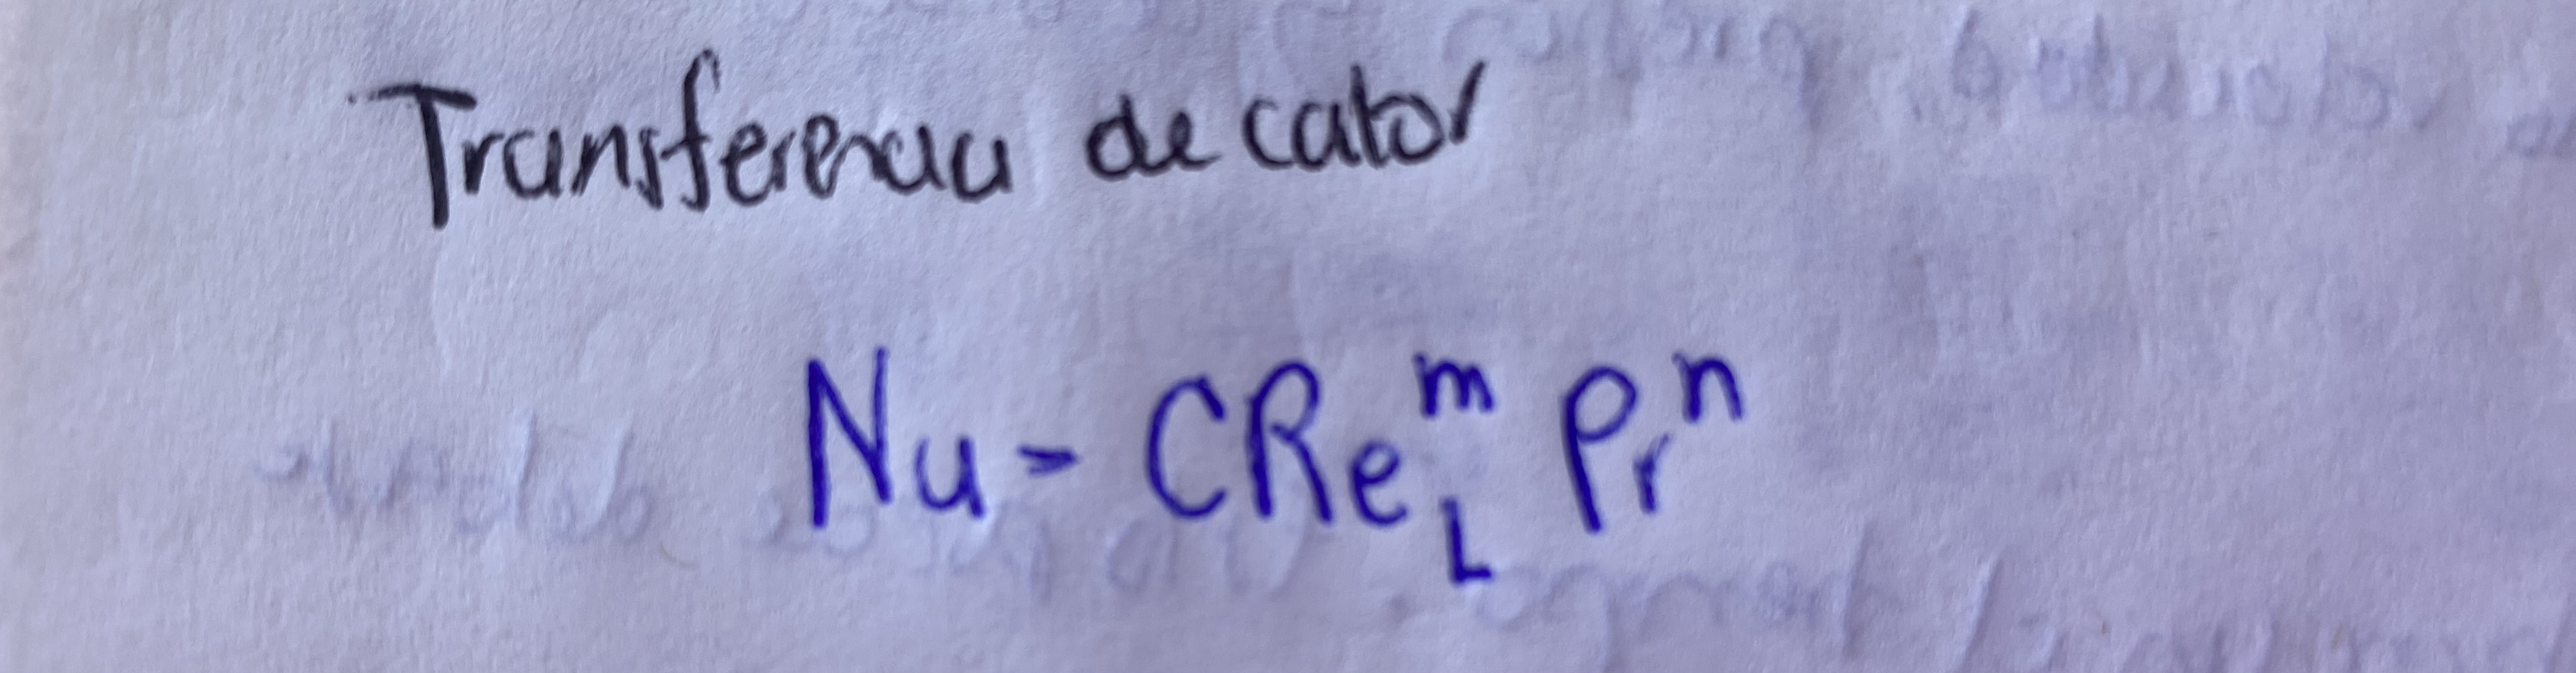 Transferencia de calor
Nu = CRe_L^m Pr^n